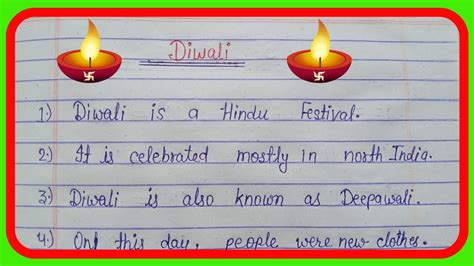 Diwali
1.) Diwali is a Hindu Festival.
2.) It is celebrated mostly in north India.
3.) Diwali is also known as Deepawali.
4.) On this day, people were new clothes.